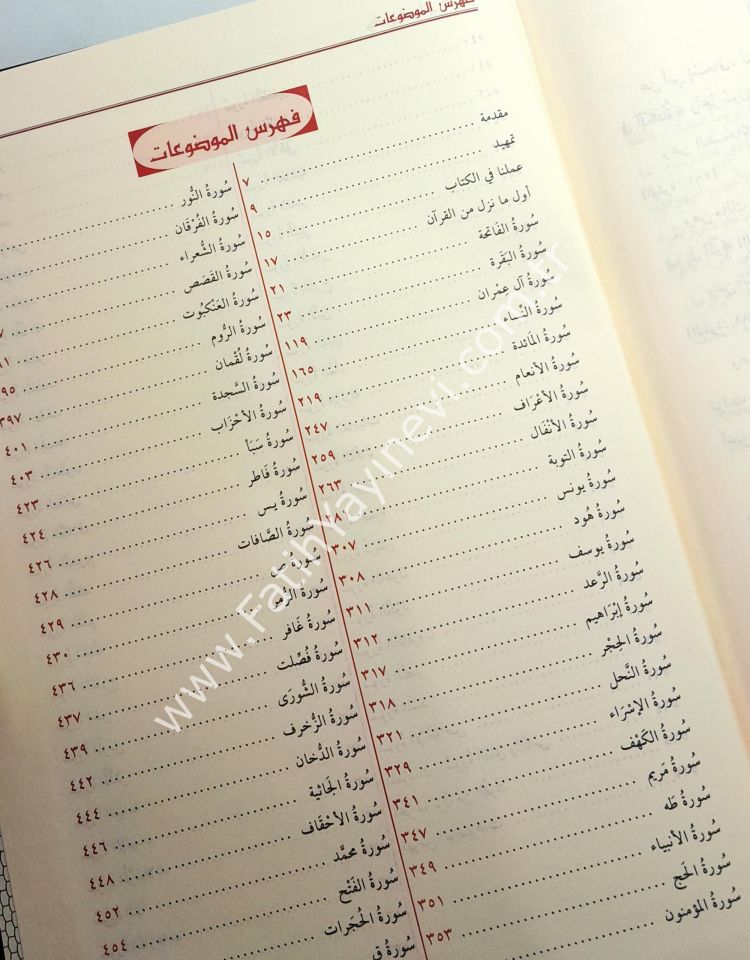 فهرس الموضوعات
فهرس الموضوعات
مقدمة ٧
تمهيد ٩
عملنا في الكتاب ١٥
أول ما نزل من القرآن ١٧
سُورةُ الفَاتحة ٢١
سُورةُ البَقَرة ٢٣
سُورةُ آل عِمْران ١١٩
سُورةُ النِّساء ١٦٥
سُورةُ المَائدة ٢١٩
سُورةُ الأنعام ٢٤٧
سُورةُ الأعْرَاف ٢٥٩
سُورةُ الأنْفَال ٢٦٣
سُورةُ التوبة
سُورةُ يونس ٣٠٧
سُورةُ هُود ٣٠٨
سُورةُ يوسف ٣١١
سُورةُ الرَّعد ٣١٢
سُورةُ إبْرَاهيم ٣١٧
سُورةُ الحِجْر ٣١٨
سُورةُ النَّحل ٣٢١
سُورةُ الإسْرَاء ٣٢٩
سُورةُ الكَهْف ٣٤١
سُورةُ مَريم ٣٤٧
سُورةُ طَه ٣٤٩
سُورةُ الأنبياء ٣٥١
سُورةُ الحَج ٣٥٣
سُورةُ المؤمنون
سُورةُ النُّور
سُورةُ الفُرْقَان
سُورةُ الشُّعراء
سُورةُ القَصَص ٧
سُورةُ العَنْكبُوت ٩١
سُورةُ الرُّوم ٩٥
سُورةُ لُقْمان ٣٩٧
سُورةُ السَّجدة ٤٠١
سُورةُ الأحْزَاب ٤٠٣
سُورةُ سَبَأ ٤٢٣
سُورةُ فَاطر ٤٢٤
سُورةُ يس ٤٢٦
سُورةُ الصَّافات ٤٢٨
سُورةُ ص ٤٢٩
سُورةُ الزُّمَر ٤٣٠
سُورةُ غَافر ٤٣٦
سُورةُ فُصِّلت ٤٣٧
سُورةُ الشُّورَى ٤٣٩
سُورةُ الزُّخرف ٤٤٢
سُورةُ الدُّخان ٤٤٤
سُورةُ الجَاثية ٤٤٦
سُورةُ الأحْقَاف ٤٤٨
سُورةُ محمَّد ٤٥٢
سُورةُ الفَتْح ٤٥٤
سُورةُ الحُجرات
سُورةُ ق
www.FatihYayinevi.com.tr